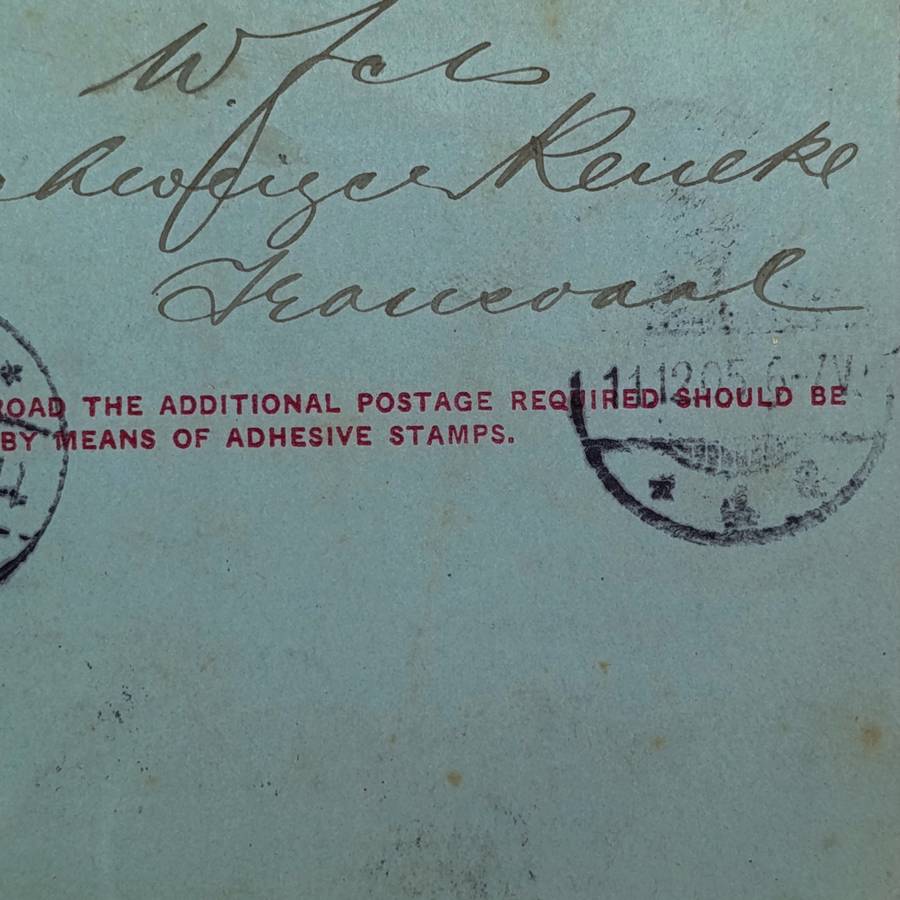 W.
Reneke
Transvaal
ROAD THE ADDITIONAL POSTAGE REQUIRED SHOULD BE
BY MEANS OF ADHESIVE STAMPS.
11.12.05. 6-7V.